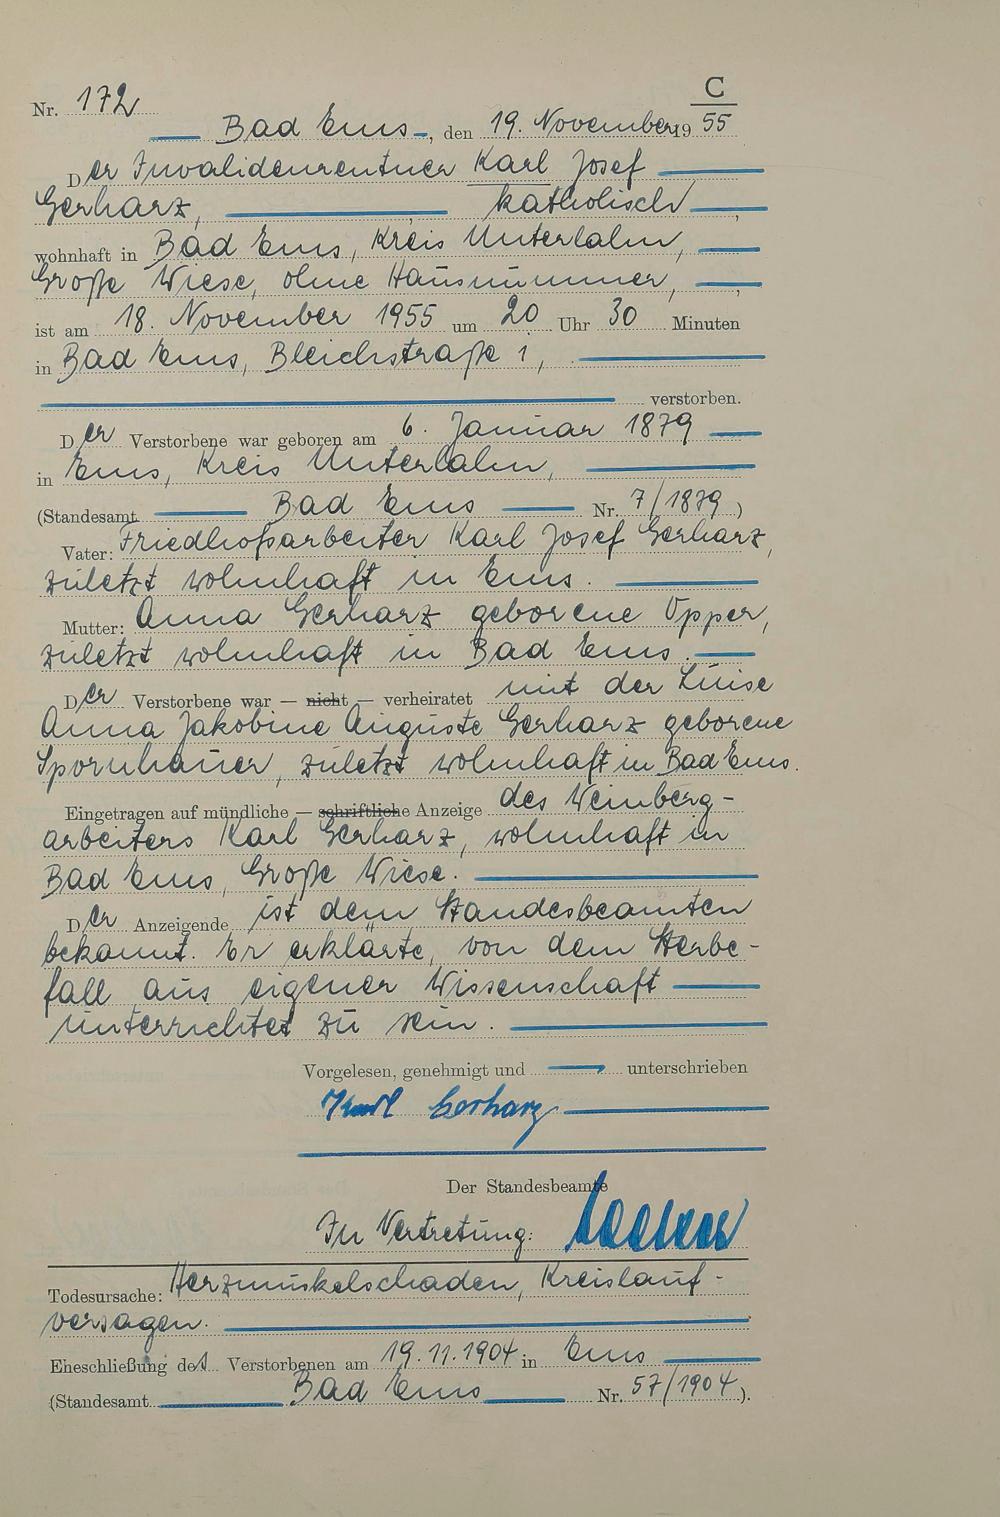 C
Nr. 172
Bad Ems, den 19. November 19 55
Der Invalidenrentner Karl Josef
Gerharz, katholisch,
wohnhaft in Bad Ems, Kreis Unterlahn,
Große Wiese, ohne Hausnummer,
ist am 18. November 1955 um 20 Uhr 30 Minuten
in Bad Ems, Bleichstraße 1,
verstorben.
Der Verstorbene war geboren am 6. Januar 1879
in Ems, Kreis Unterlahn,
(Standesamt Bad Ems Nr. 7/1879)
Vater: Friedhofsarbeiter Karl Josef Gerharz,
zuletzt wohnhaft in Ems.
Mutter: Anna Gerharz geborene Opper,
zuletzt wohnhaft in Bad Ems.
Der Verstorbene war — nicht — verheiratet mit der Luise
Anna Jakobine Auguste Gerharz geborene
Spornhauer, zuletzt wohnhaft in Bad Ems.
Eingetragen auf mündliche — schriftliche Anzeige des Weinberg-
arbeiters Karl Gerharz, wohnhaft in
Bad Ems, Große Wiese.
Der Anzeigende ist dem Standesbeamten
bekannt. Er erklärte, von dem Sterbe-
fall aus eigener Wissenschaft
unterrichtet zu sein.
Vorgelesen, genehmigt und unterschrieben
Karl Gerharz
Der Standesbeamte
In Vertretung:
Todesursache: Herzmuskelschaden, Kreislauf-
versagen.
Eheschließung des Verstorbenen am 19.11.1904 in Ems
(Standesamt Bad Ems Nr. 57/1904).